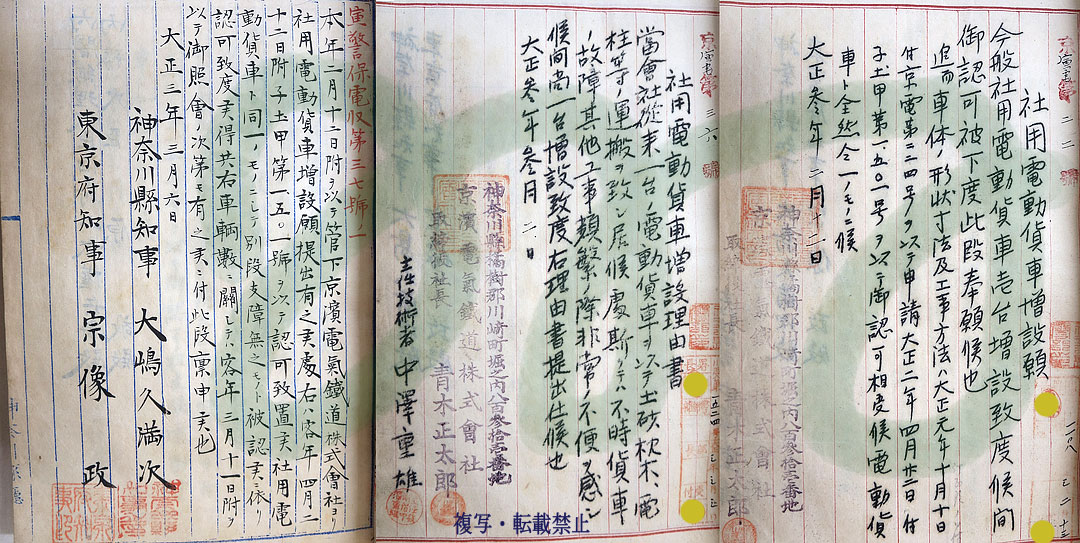 社用電動貨車増設願
今般社用電動貨車壱台増設致度候間
御認可被下度此段奉願候也
追而車体ノ形状寸法及工事方法ハ大正元年十月十日
付京電第二二四号ヲ以テ申請大正二年四月廿二日付
子土甲第一、五〇一号ヲ以テ御認可相受候電動貨
車ト全然仝一ノモノ候
大正参年二月十二日
神奈川縣橘樹郡川崎町堀之内八百参拾壱番地
社用電動貨車増設理由書
當會社従来一台ノ電動貨車ヲ以テ土砂枕木、電
柱等ノ運搬ヲ致シ居候處斯クテハ不時貨車
ノ故障其他工事頻繁ノ際非常ノ不便ヲ感シ
候間尚一台増設致度右理由書提出仕候也
大正参年参月二日
神奈川縣橘樹郡川崎町堀之内八百参拾壱番地
京濱電氣鐵道株式會社
取締役社長 青木正太郎
主任技術者 中澤重雄
寅警保電収第三七號ノ一
本年二月十二日附ヲ以テ管下京濱電氣鐵道株式會社ヨリ
社用電動貨車増設願提出有之候處右ハ客年四月二
十二日附子土甲第一、五〇一號ヲ以テ認可致置候社用電
動貨車ト同一ノモノニシテ別段支障無之モノト被認候ニ依リ
認可致度候得共右車輌数ニ關シテハ客年三月十一日附ヲ
以テ御照會ノ次第モ有之候ニ付此段禀申候也
大正三年三月六日
神奈川縣知事 大嶋久満次
東京府知事 宗像 政
複写・転載禁止